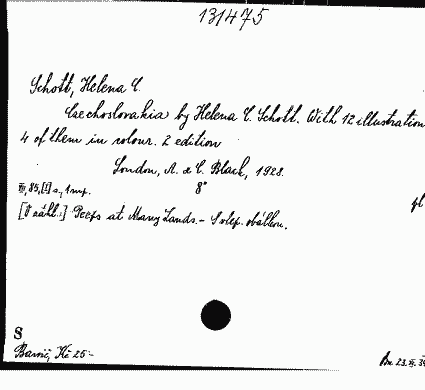 131475
Schott, Helena C.
Czechoslovakia by Helena C. Schott. With 12 illustration
4 of them in colour. 2 edition
London, A. & C. Black, 1928.
85, [1] s., 1 mp. 8°
[V záhl.:] Peeps at Many Lands. - S slep. obálkou.
S
Kč 25·-
23.